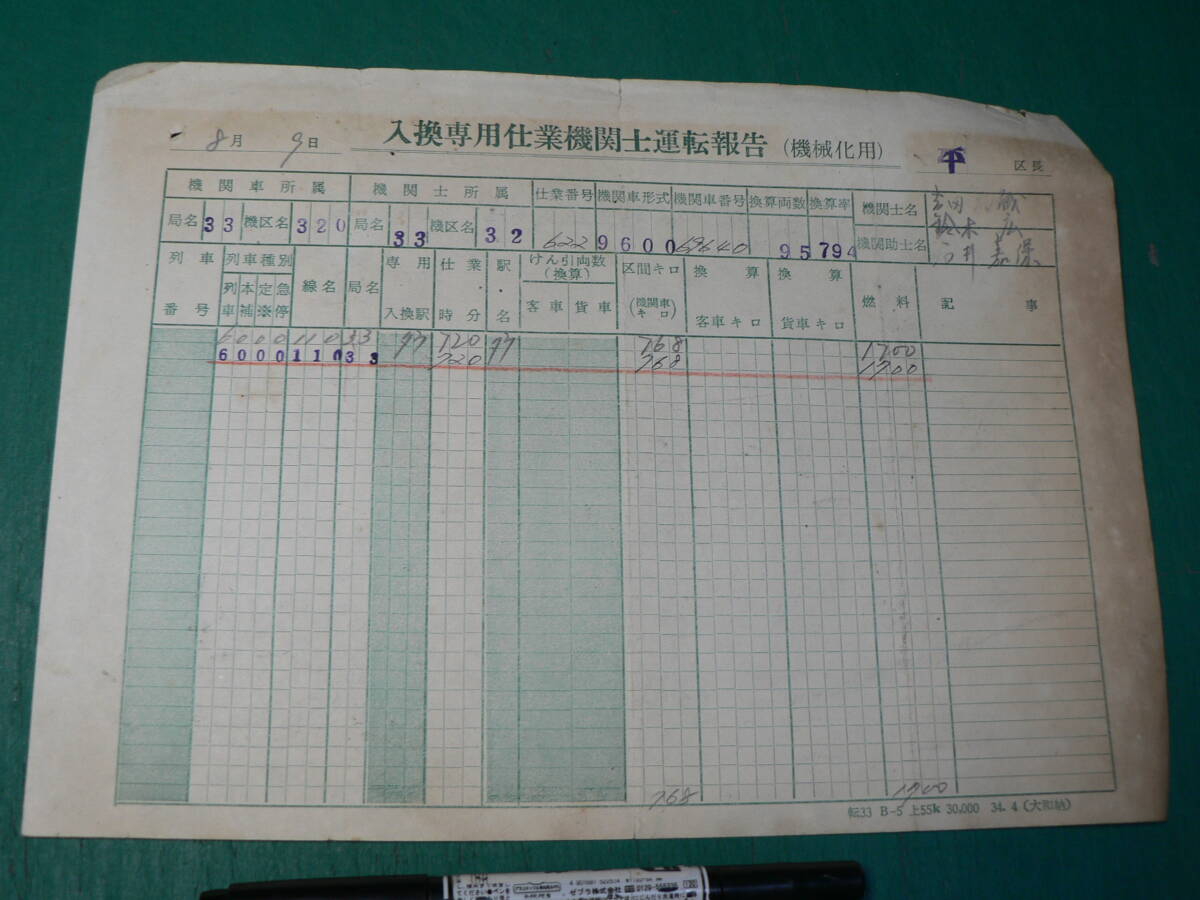 8月 9日 入換専用仕業機関士運転報告 (機械化用) 平 区長
機関車所属 機関士所属 仕業番号 機関車形式 機関車番号 換算両数 換算率 機関士名 吉田
鈴木
局名 33 機区名 320 局名 33 機区名 32 622 9600 69640 95 794 機関助士名
列車番号 列車種別 線名 局名 専用入換駅 仕業時分 駅名 けん引両数(換算) 区間キロ(機関車キロ) 換算客車キロ 換算貨車キロ 燃料 記事
列車 本補 定※ 急停 客車 貨車
6000 110 33 97 720 97 768 1700
6000 110 33 720 768 1700
768 1700
転33 B-5 上55k 30,000 34.4 (大和納)
ゼブラ株式会社